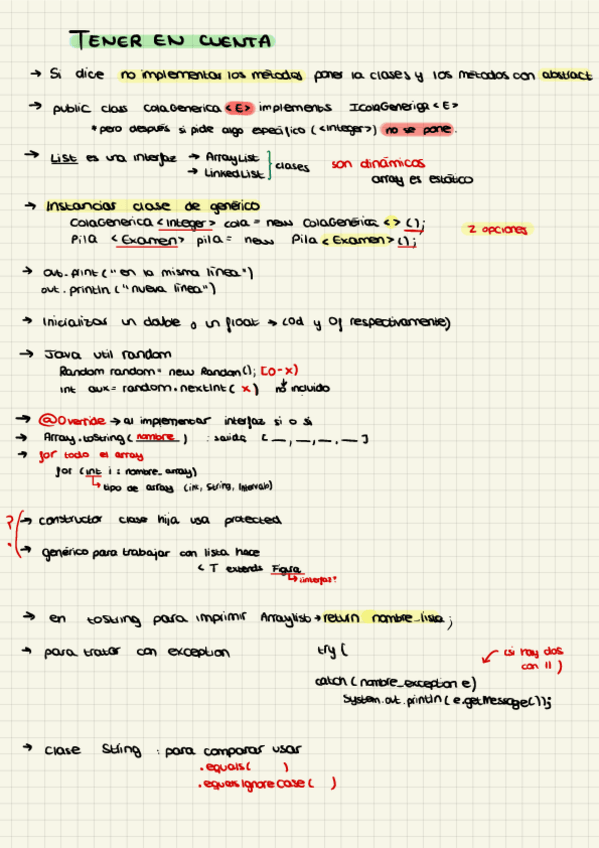 TENER EN CUENTA
→ Si dice no implementar los métodos poner la clases y los métodos con abstract
→ public class ColaGenerica <E> implements IColaGeneriga <E>
* pero después si pide algo específico (<Integer>) no se pone.
→ List es una interfaz → ArrayList
→ LinkedList } clases
son dinámicos
array es estático
→ Instanciar clase de genérico
ColaGenerica <Integer> cola = new ColaGenérica <> ();
Pila <Examen> pila = new Pila <Examen> ();
2 opciones
→ out.print ("en la misma línea")
out.println ("nueva línea")
→ Inicializar un double o un float → (0d y 0f respectivamente)
→ Java util random
Random random = new Random(); [0-x)
int aux = random.nextInt( x ) no incluido
→ @Override → al implementar interfaz si o si
→ Array.toString( nombre ) : salida [ _ , _ , _ , _ ]
→ for todo el array
for (int i : nombre_array)
↳ tipo de array (int, String, Intervalo)
? → constructor clase hija usa protected
→ genérico para trabajar con lista hace
< T extends Figura
↳ ¿interfaz?
→ en toString para imprimir ArrayList → return nombre_lista ;
→ para tratar con exception
try {
(si hay dos
con || )
catch ( nombre_exception e)
System.out.println( e.getMessage());
→ clase String : para comparar usar
.equals( )
.equalsIgnoreCase( )